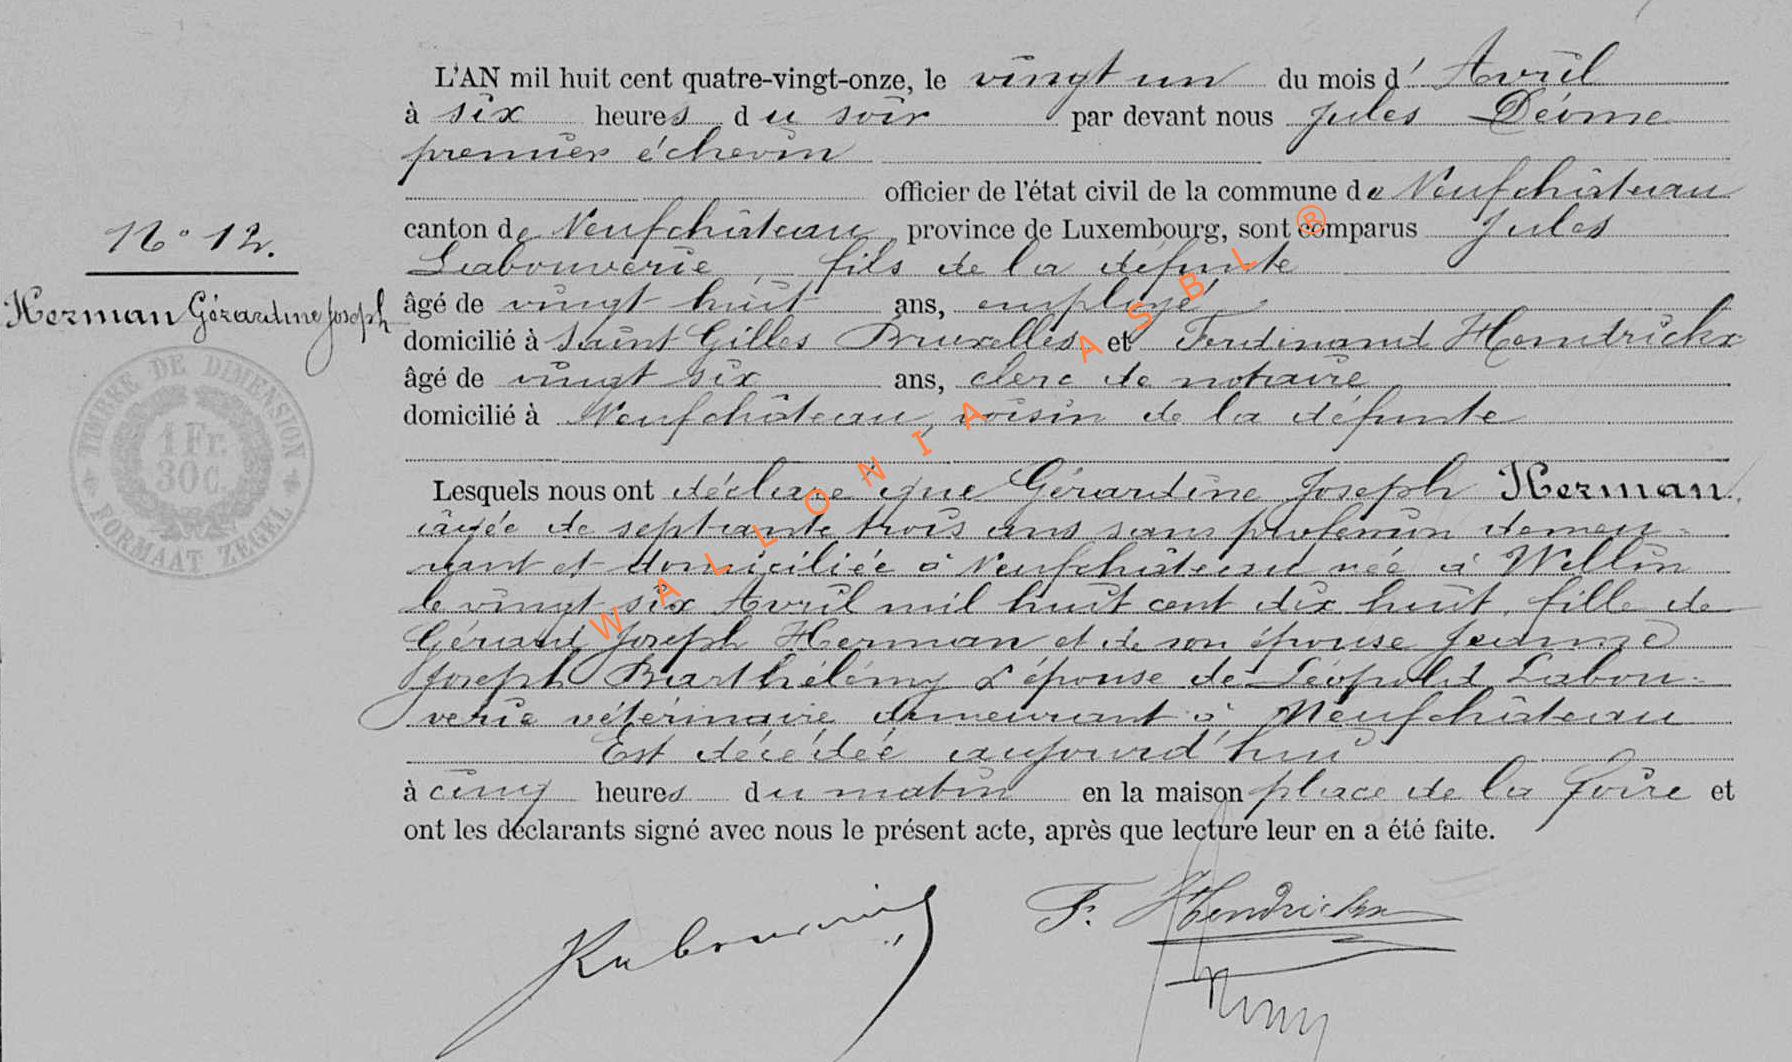 L'AN mil huit cent quatre-vingt-onze, le vingt un du mois d' Avril
à six heures du soir par devant nous Jules
premier échevin
officier de l'état civil de la commune de Neufchâteau
canton de Neufchâteau, province de Luxembourg, sont comparus Jules
Labouverie, fils de la défunte
âgé de vingt huit ans, employé
domicilié à Saint Gilles Bruxelles et Ferdinand Hendrickx
âgé de vingt six ans, clerc de notaire
domicilié à Neufchâteau, voisin de la défunte
Lesquels nous ont déclaré que Gérardine Joseph Herman,
âgée de septante trois ans sans profession demeu-
rant et domiciliée à Neufchâteau née à Wellin
le vingt six Avril mil huit cent dix huit, fille de
Gérard Joseph Herman et de son épouse Jeanne
Joseph Barthélémy & épouse de Léopold Labou-
verie vétérinaire demeurant à Neufchâteau
Est décédée aujourd'hui
à cinq heures du matin en la maison place de la foire et
ont les déclarants signé avec nous le présent acte, après que lecture leur en a été faite.
N° 12.
Herman Gérardine Joseph
TIMBRE DE DIMENSION
1 Fr.
30 C.
FORMAAT ZEGEL
F. Hendrickx
WALLONIA ASBL ®